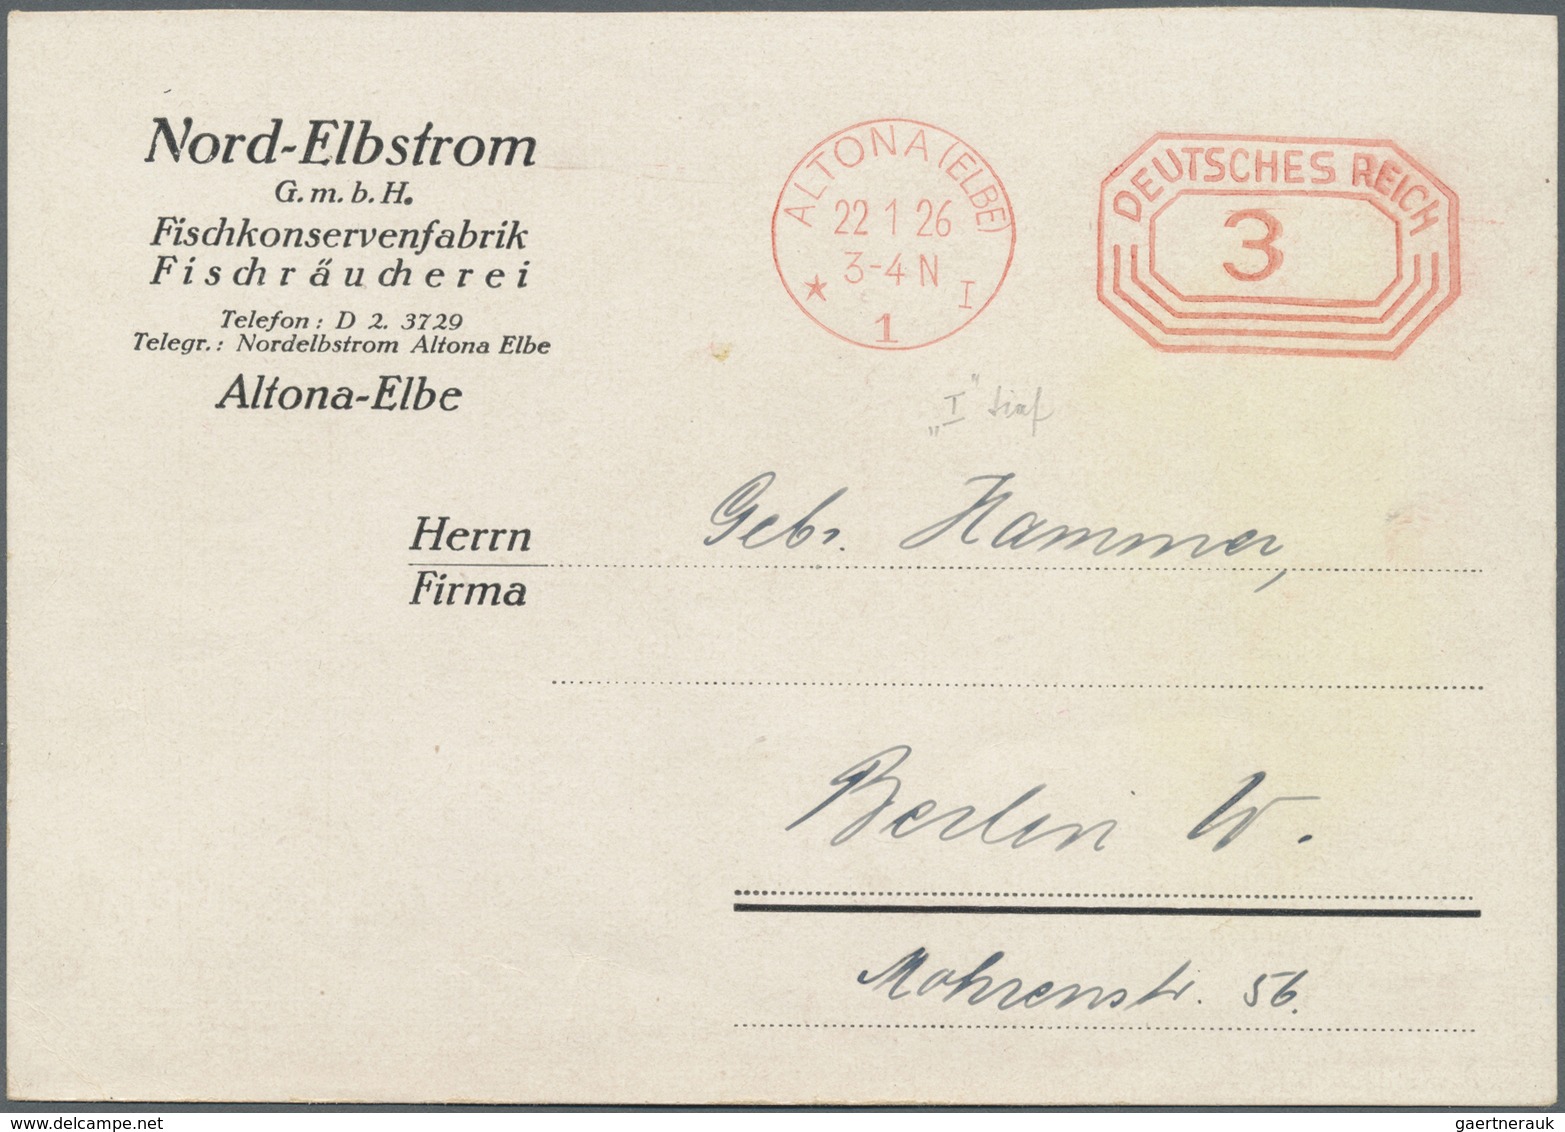 Nord-Elbstrom
G.m.b.H.
Fischkonservenfabrik
Fischräucherei
Telefon: D 2. 3729
Telegr.: Nordelbstrom Altona Elbe
Altona-Elbe
ALTONA (ELBE)
22 1 26
3-4 N
* I
1
DEUTSCHES REICH
3
„I“ tief
Herrn
Firma
Gebr. Hammer,
Berlin W.
Mohrenstr. 56.
gaertnerauk